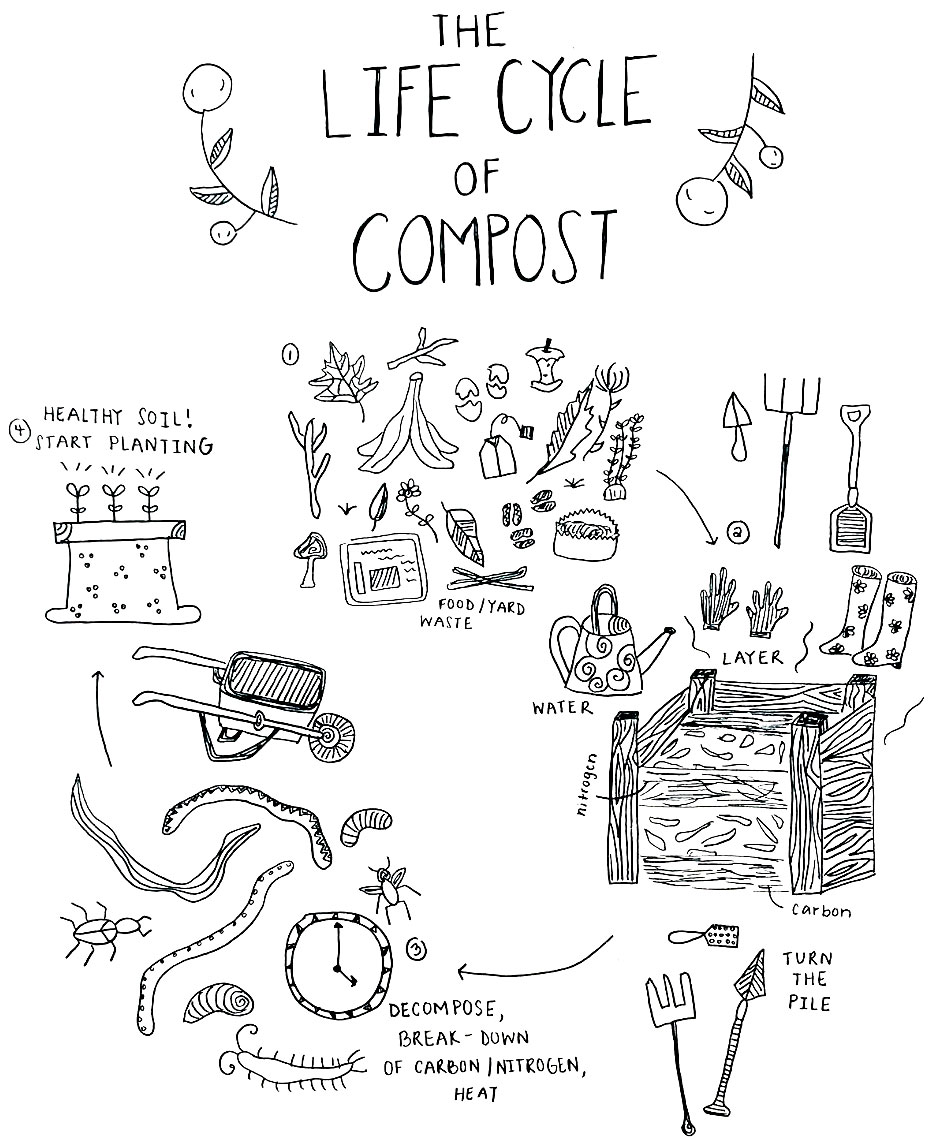 THE
LIFE CYCLE
OF
COMPOST
1
FOOD/YARD
WASTE
2
LAYER
WATER
nitrogen
carbon
TURN
THE
PILE
3
DECOMPOSE,
BREAK-DOWN
OF CARBON/NITROGEN,
HEAT
4
HEALTHY SOIL!
START PLANTING